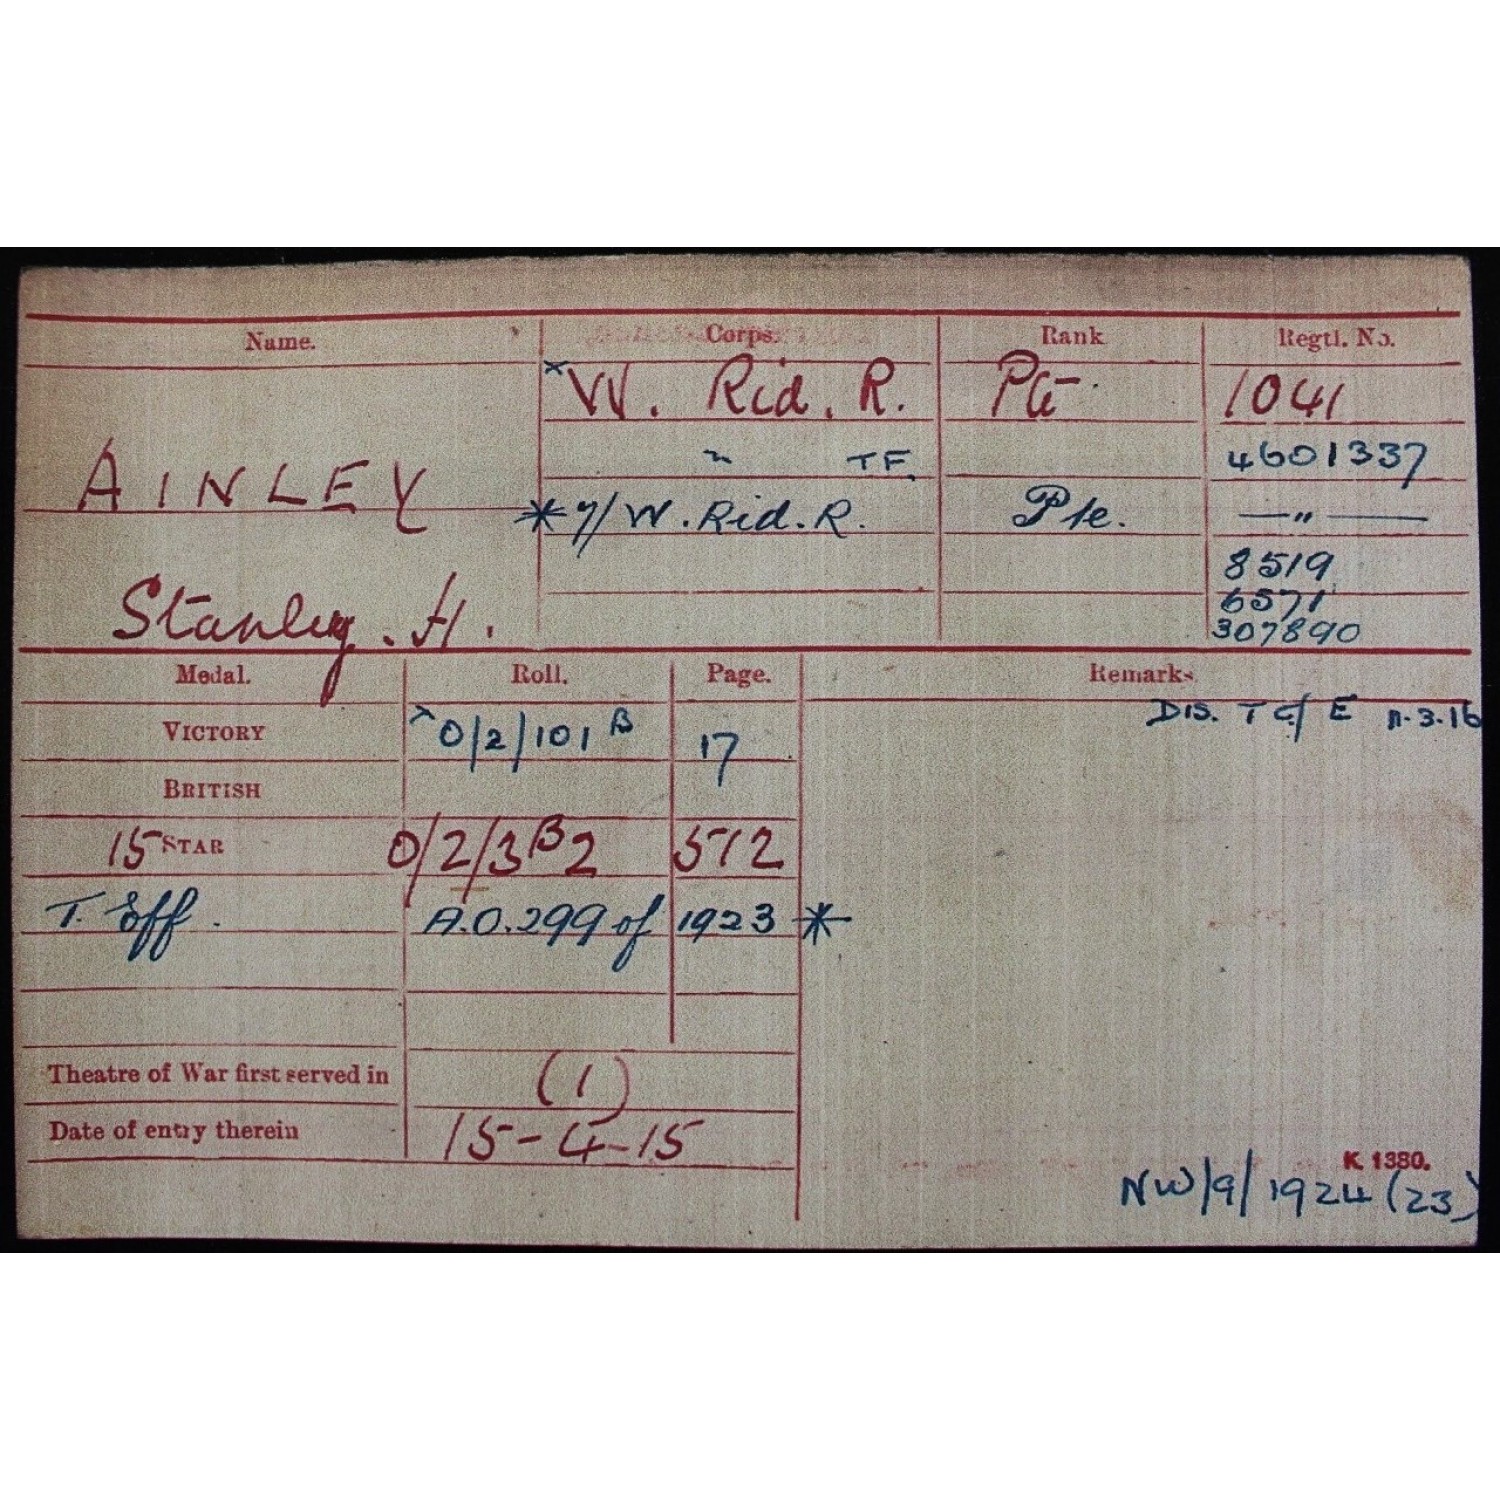 Name. Corps. Rank Regtl. No.
AINLEY
Stanley. H.
× W. Rid. R. Pte 1041
" TF. 4601337
* 7/ W. Rid. R. Pte. — " —
8519
6571
307890
Medal. Roll. Page. Remarks
VICTORY × O/2/101 B 17 DIS. T C/ E 11.3.16
BRITISH
15 STAR O/2/3 B 2 512
T. Eff. A.O. 299 of 1923 *
Theatre of War first served in (1)
Date of entry therein 15-4-15
K. 1380.
NW/9/1924 (23)